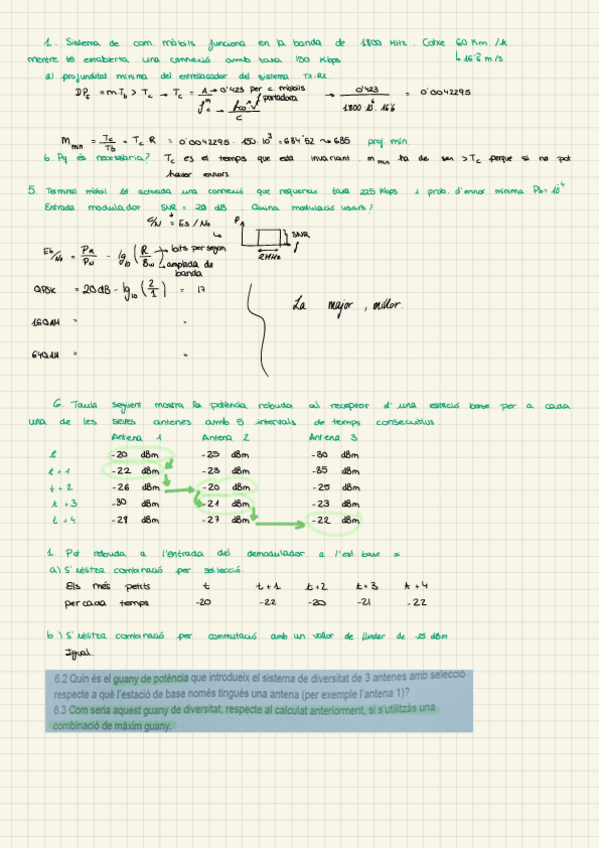 1. Sistema de com. mòbils funciona en la banda de 1800 MHz. Cotxe 60 Km/h
mentre té establerta una connexió amb taxa 150 Kbps ↳ 16'6 m/s
a) profunditat mínima del entrelaçador del sistema TX-RX
DPe = m·Tb > Tc → Tc = 1 → 0'423 per c. mòbils → 0'423 = 0'0042295
portadora
c
1800·10⁶·16'6
m min = Tc/Tb = Tc·R = 0'0042295 · 150·10³ = 634'52 ~> 635 prof. min.
b. Pq és necessària? Tc es el temps que esta invariant. m min ha de ser > Tc perque si no pot
haver errors.
5. Terminal mòbil té activada una connexió que requereix taxa 225 Kbps i prob. d'error mínima Pb = 10⁻⁴
Entrada modulador SNR = 20 dB. Quina modulació usaris?
C/N = Es/No
P SNR
2MHz
Eb/No = PR/PN - lg10 (R/Bw) → bits per segon
↳ amplada de
banda
QPSK = 20 dB - lg10 (2/1) = 17
La major, millor.
16QAM = =
64QAM = =
6. Taula següent mostra la potència rebuda al receptor d'una estació base per a cada
una de les seves antenes amb 5 intervals de temps consecutius
Antena 1 Antena 2 Antena 3
t -20 dBm -25 dBm -30 dBm
t+1 -22 dBm -23 dBm -35 dBm
t+2 -26 dBm -20 dBm -25 dBm
t+3 -30 dBm -21 dBm -23 dBm
t+4 -29 dBm -27 dBm -22 dBm
1. Pot rebuda a l'entrada del demodulador a l'est base =
a) S'utilitza combinació per selecció.
Els més petits t t+1 t+2 t+3 t+4
per cada temps -20 -22 -20 -21 -22
b) S'utilitza combinació per commutació amb un valor de llindar de -25 dBm
Igual.
6.2 Quin és el guany de potència que introdueix el sistema de diversitat de 3 antenes amb selecció
respecte a què l'estació de base només tingués una antena (per exemple l'antena 1)?
6.3 Com seria aquest guany de diversitat, respecte al calculat anteriorment, si s'utilitzàs una
combinació de màxim guany.